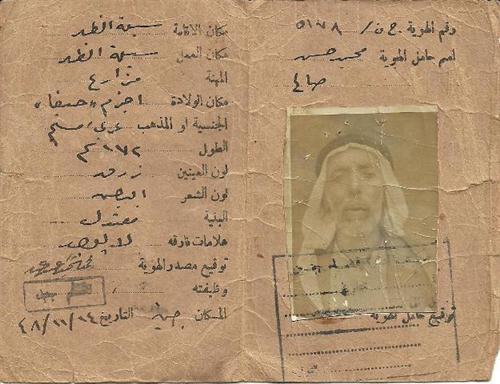 رقم الهوية ج ن/ ٥١٧٨
اسم حامل الهوية محمد حسن
صالح
توقيع حامل الهوية
مكان الاقامة سيلة الظهر
مكان العمل سيلة الظهر
المهنة مزارع
مكان الولادة اجزم «حيفا»
الجنسية او المذهب عربي مسلم
الطول ١٧٢
لون العينين زرق
لون الشعر ابيض
البنية معتدل
علامات فارقه لا يوجد
توقيع مصدر الهوية
وظيفته
المكان جنين التاريخ ٤٨/١١/٢٤